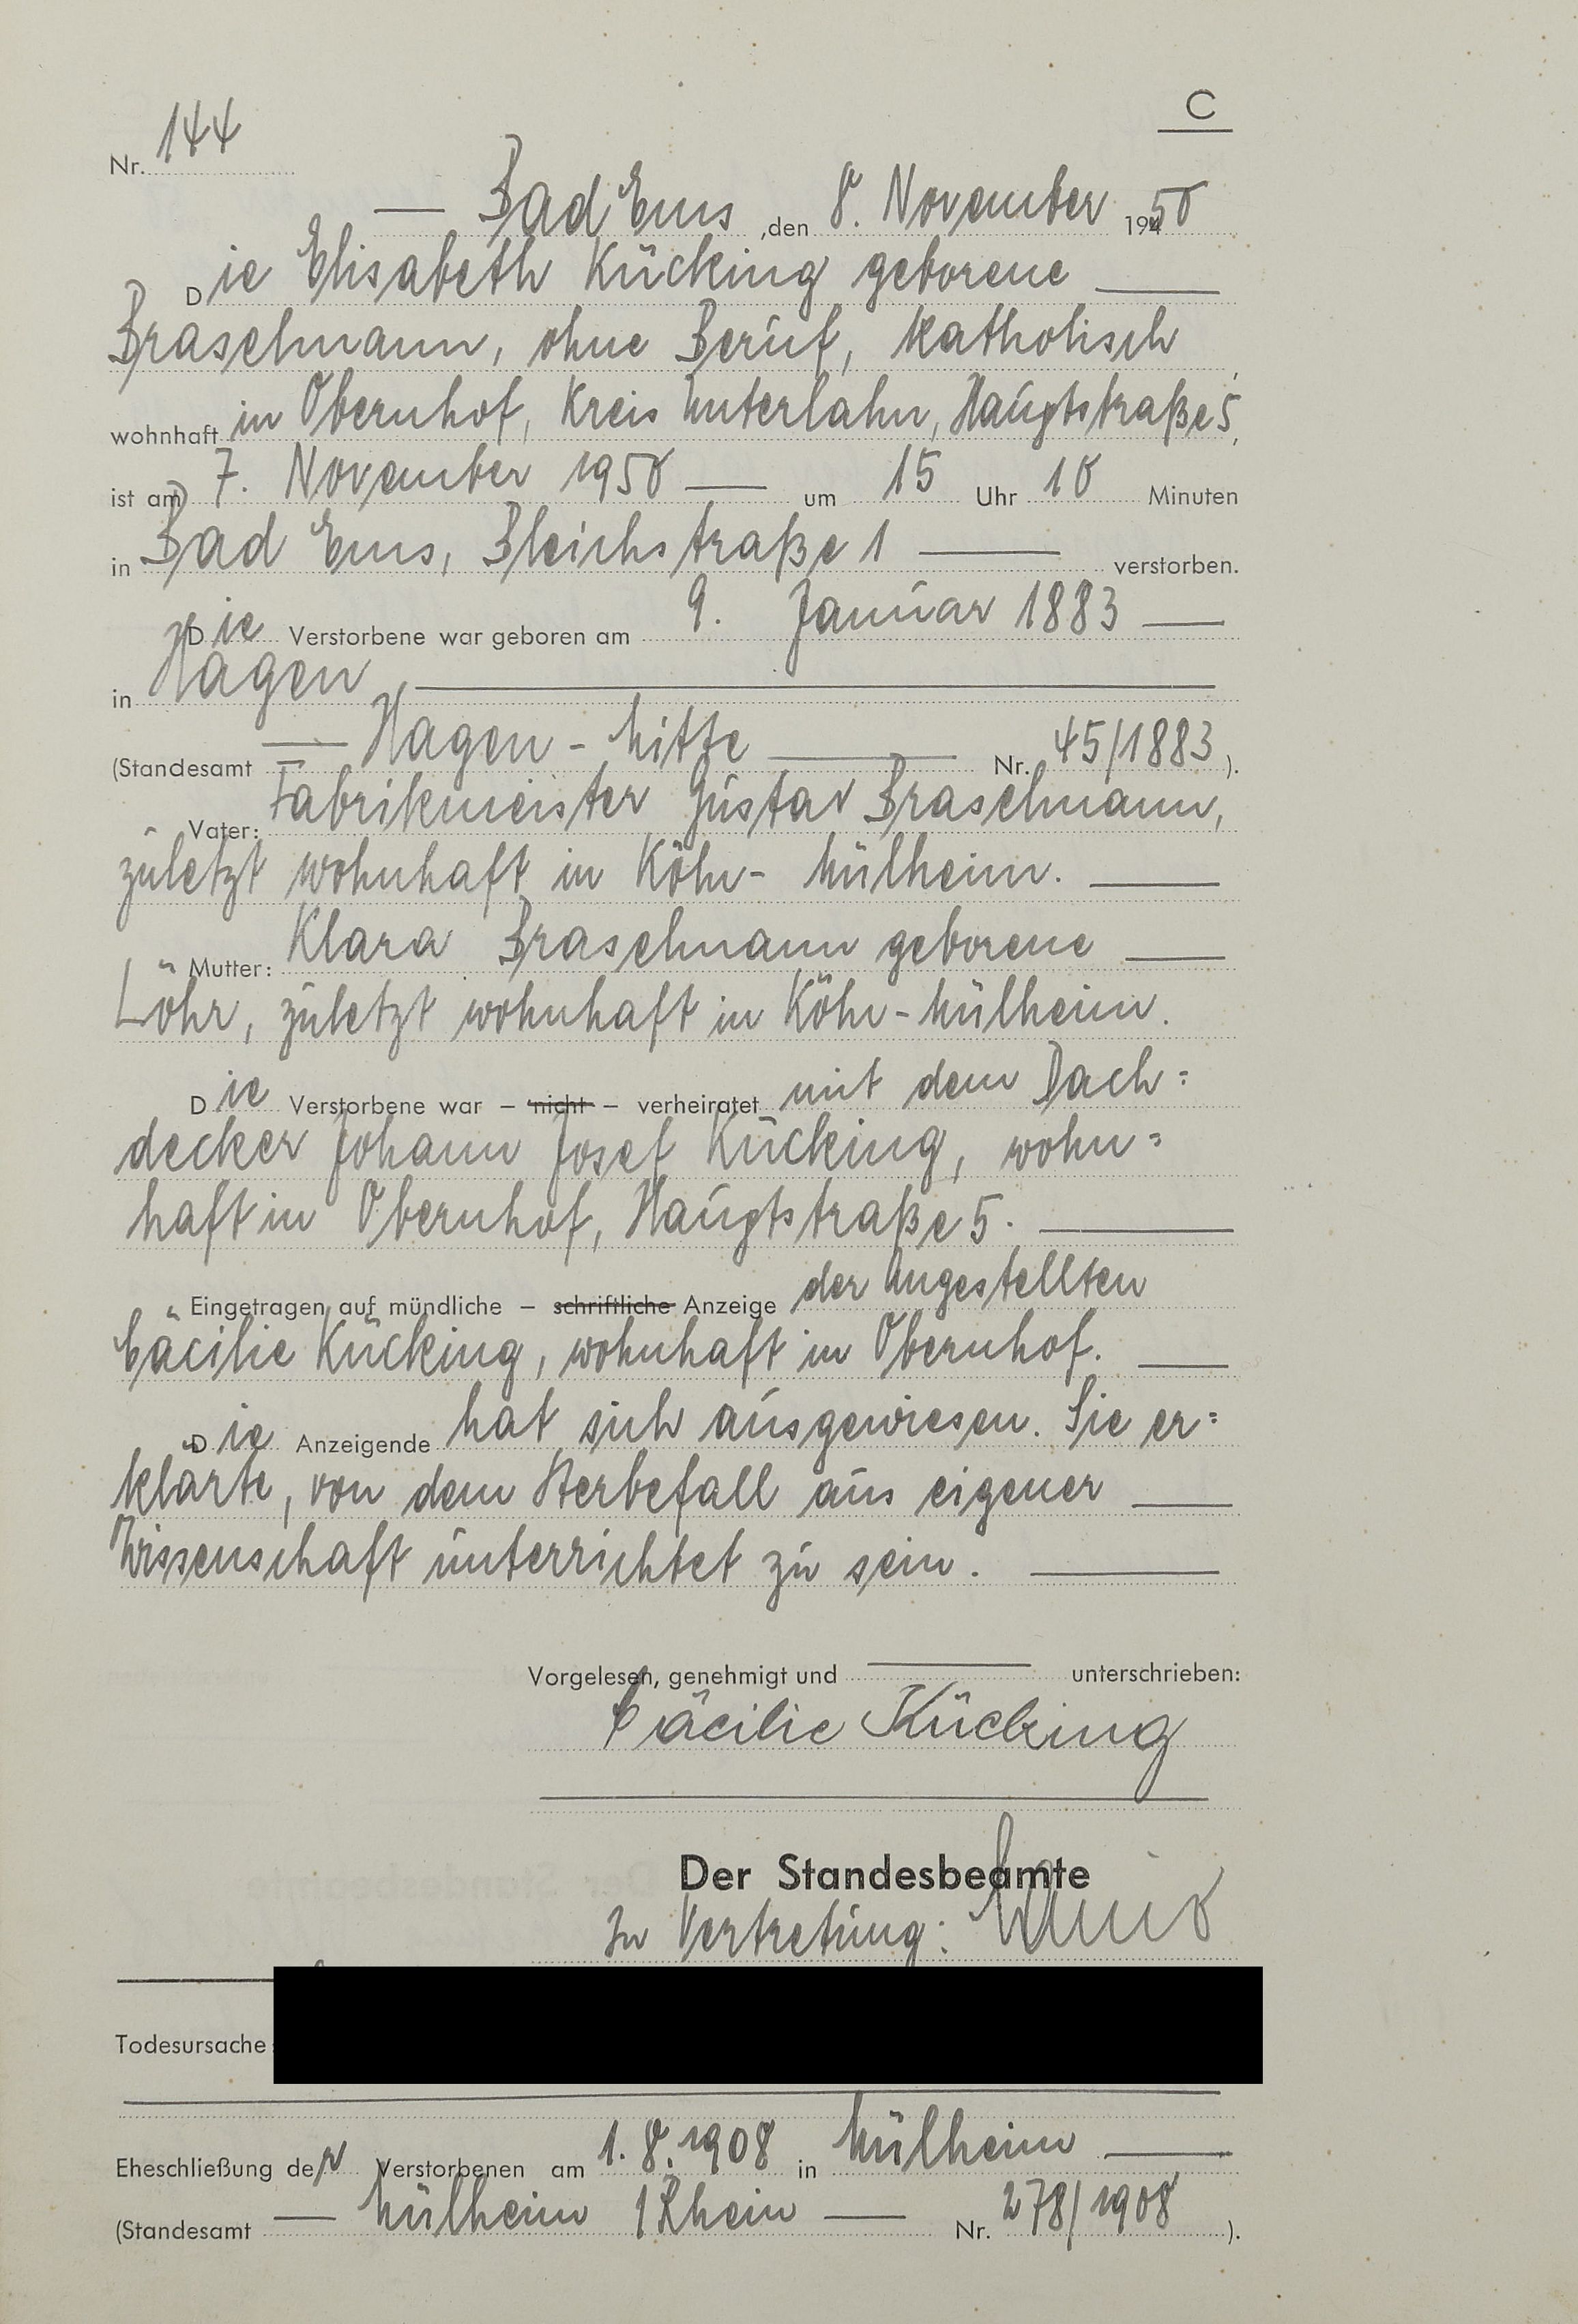 C
Nr. 144
— Bad Ems, den 8. November 1950
Die Elisabeth Kücking geborene —
Braselmann, ohne Beruf, katholisch
wohnhaft in Obernhof, Kreis Unterlahn, Hauptstraße 5,
ist am 7. November 1950 — um 15 Uhr 10 Minuten
in Bad Ems, Bleichstraße 1 — verstorben.
Die Verstorbene war geboren am 9. Januar 1883 —
in Hagen —
(Standesamt — Hagen-Mitte — Nr. 45/1883).
Vater: Fabrikmeister Gustav Braselmann,
zuletzt wohnhaft in Köln-Mülheim. —
Mutter: Klara Braselmann geborene —
Löhr, zuletzt wohnhaft in Köln-Mülheim.
Die Verstorbene war – nicht – verheiratet mit dem Dach=
decker Johann Josef Kücking, wohn=
haft in Obernhof, Hauptstraße 5. —
Eingetragen auf mündliche – schriftliche Anzeige der Angestellten
Cäcilie Kücking, wohnhaft in Obernhof. —
Die Anzeigende hat sich ausgewiesen. Sie er=
klärte, von dem Sterbefall aus eigener —
Wissenschaft unterrichtet zu sein. —
Vorgelesen, genehmigt und — unterschrieben:
Cäcilie Kücking
Der Standesbeamte
In Vertretung:
Todesursache:
Eheschließung der Verstorbenen am 1.8.1908 in Mülheim —
(Standesamt — Mülheim / Rhein — Nr. 278/1908).